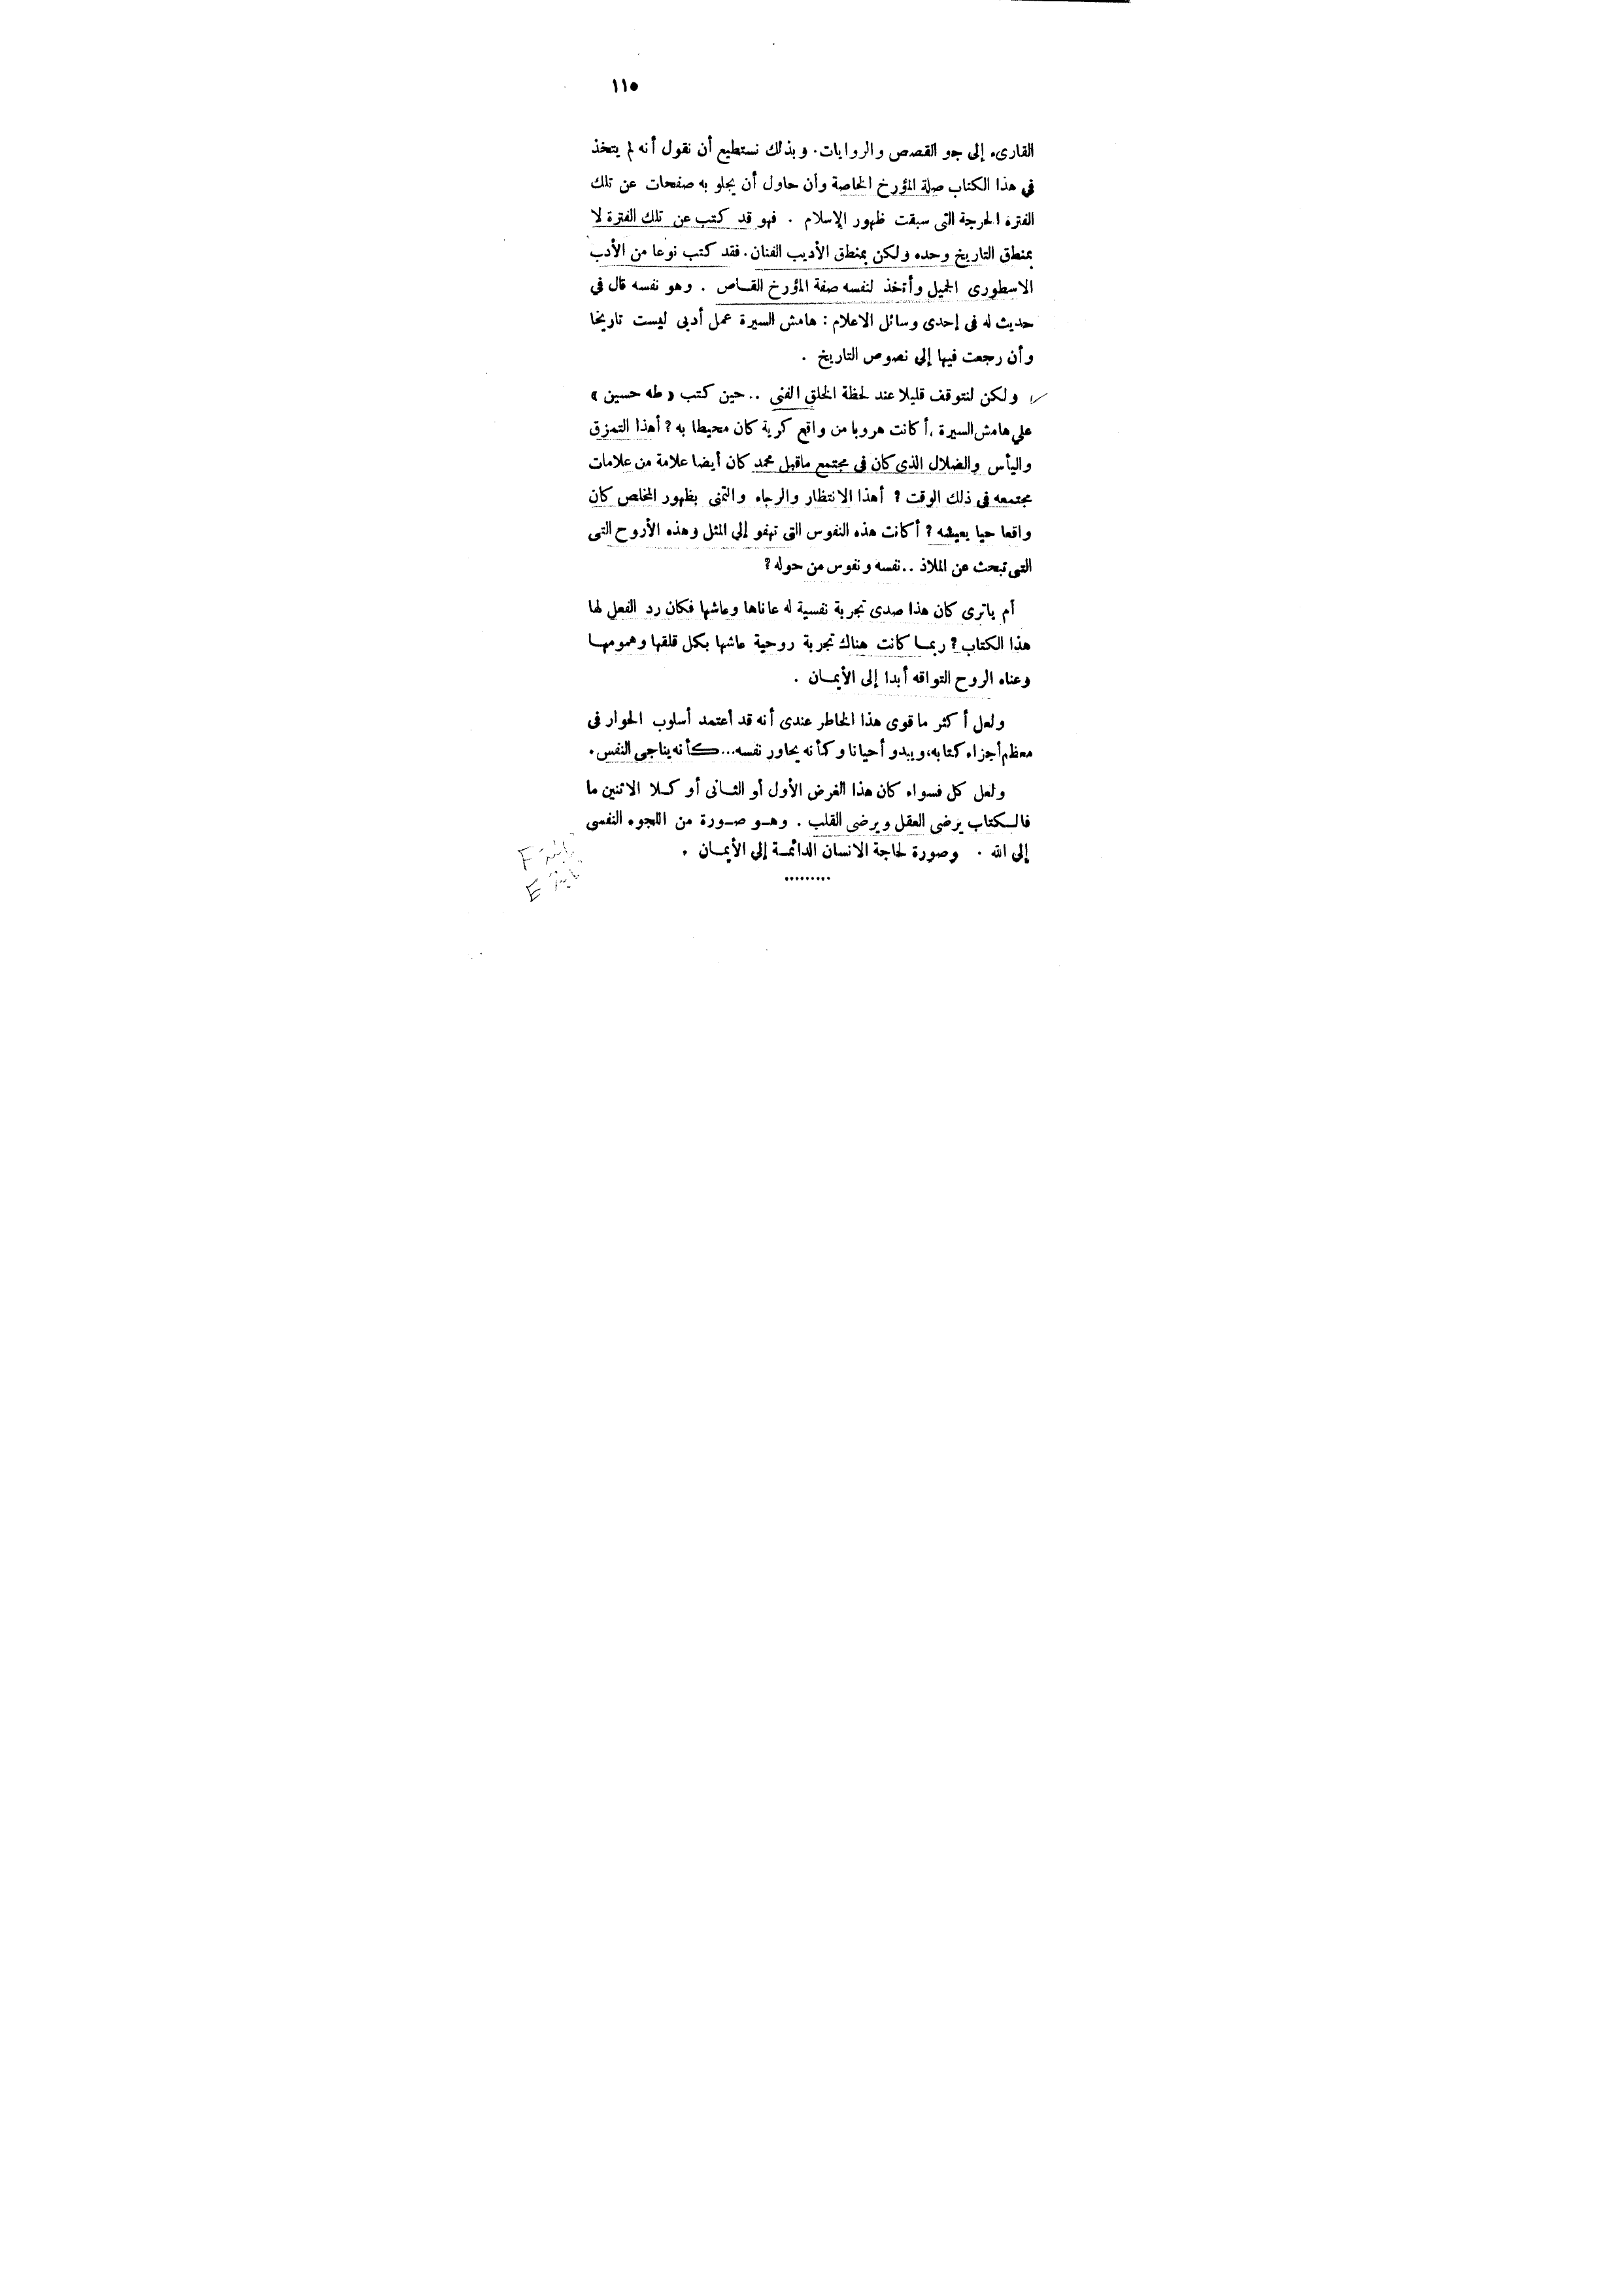 ١١٥
القارىء إلى جو القصص والروايات. وبذلك نستطيع أن نقول أنه لم يتخذ
في هذا الكتاب صلة المؤرخ الخاصة وأن حاول أن يجلو به صفحات عن تلك
الفتره الحرجة التى سبقت ظهور الإسلام . فهو قد كتب عن تلك الفترة لا
بمنطق التاريخ وحده ولكن بمنطق الأديب الفنان. فقد كتب نوعا من الأدب
الاسطورى الجميل وأتخذ لنفسه صفة المؤرخ القـاص . وهو نفسه قال في
حديث له فى إحدى وسائل الاعلام : هامش السيرة عمل أدبى ليست تاريخا
وأن رجعت فيها إلى نصوص التاريخ .
ولكن لنتوقف قليلا عند لحظة الخلق الفنى .. حين كتب « طه حسين »
على هامش السيرة ، أكانت هروبا من واقع كرية كان محيطا به ? أهذا التمزق
واليأس والضلال الذى كان فى مجتمع ماقبل محمد كان أيضا علامة من علامات
مجتمعه فى ذلك الوقت ? أهذا الانتظار والرجاء والتمنى بظهور المخلص كان
واقعا حيا يعيشه ? أكانت هذه النفوس التى تهفو إلى المثل وهذه الأروح التى
التى تبحث عن الملاذ .. نفسه ونفوس من حوله ?
أم ياترى كان هذا صدى تجربة نفسية له عاناها وعاشها فكان رد الفعل لها
هذا الكتاب ? ربمـا كانت هناك تجربة روحية عاشها بكل قلقها وهمومهـا
وعناء الروح التواقه أبدا إلى الأيمـان .
ولعل أكثر ما قوى هذا الخاطر عندى أنه قد أعتمد أسلوب الحوار فى
معظم أجزاء كتابه، ويبدو أحيانا وكأنه يحاور نفسه... كأنه يناجى النفس.
ولعل كل فسواء كان هذا الغرض الأول أو الثـانى أو كـلا الاثنين ما
فالـكتاب يرضى العقل ويرضى القلب . وهـو صـورة من اللجوء النفسى
إلى الله . وصورة لحاجة الانسان الدائمـة إلى الأيمـان .
.........
F
E